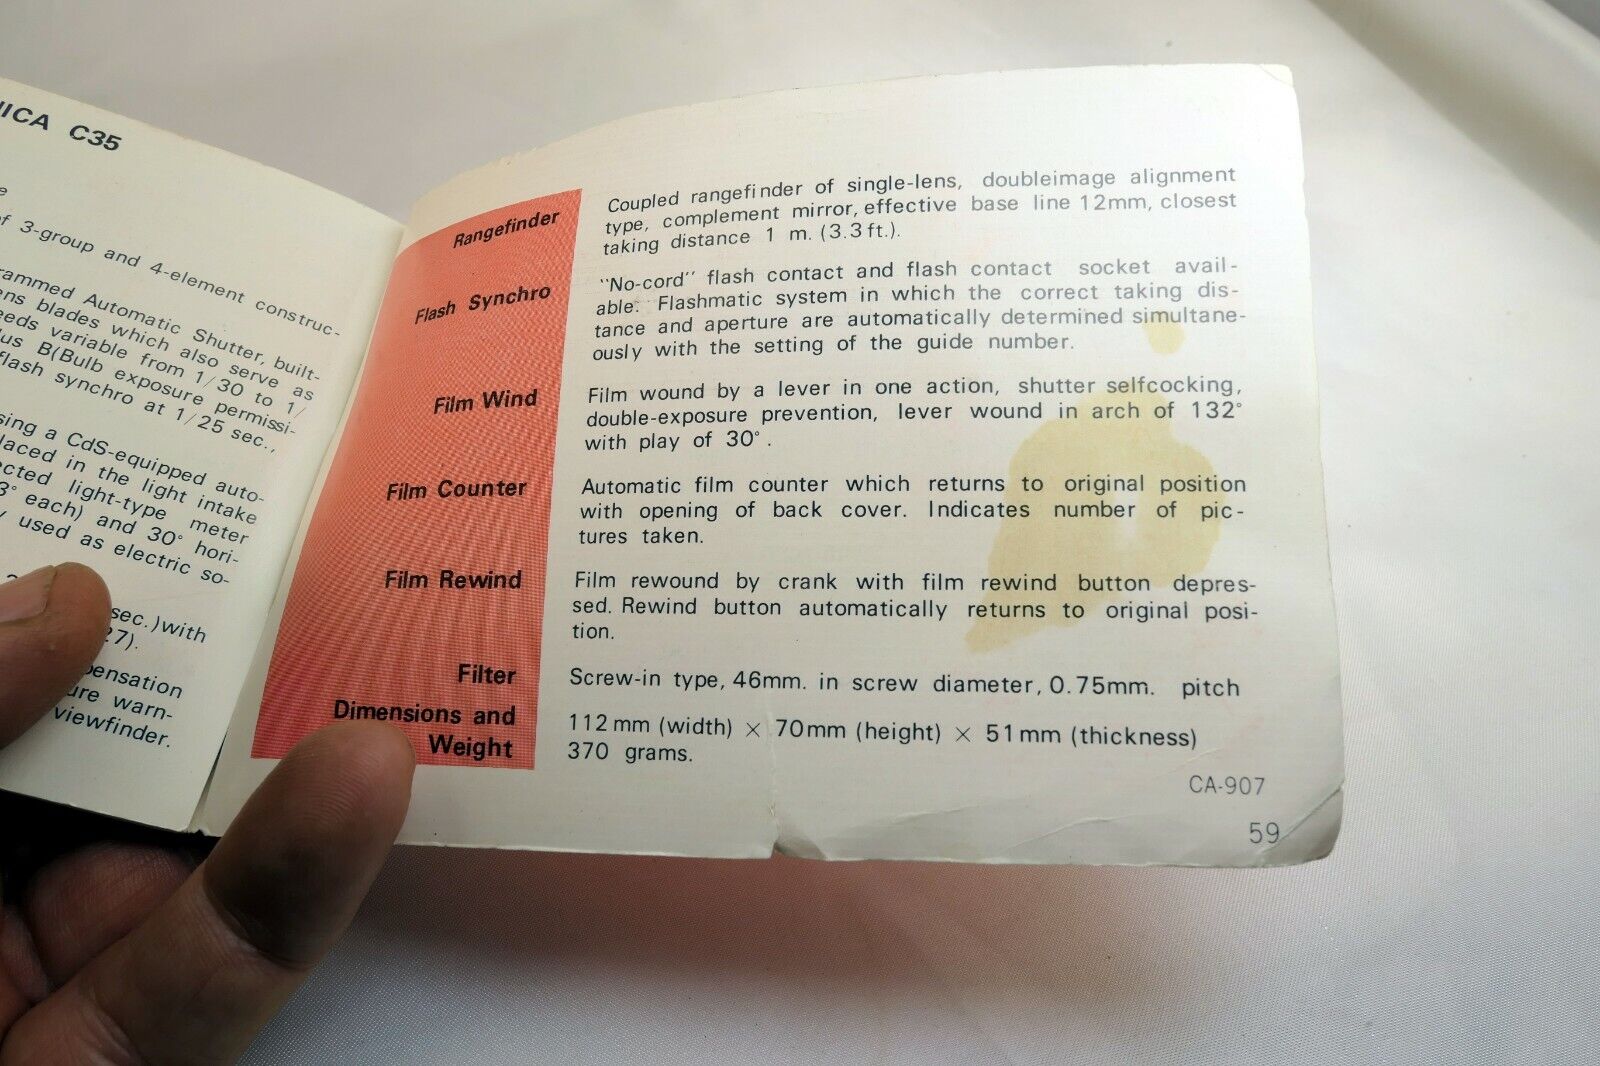 C35
of 3-group and 4-element construc-
Automatic Shutter, built-
blades which also serve as
variable from 1/30 to 1/
B(Bulb exposure permissi-
flash synchro at 1/25 sec.,
a CdS-equipped auto-
in the light intake
light-type meter
3° each) and 30° hori-
used as electric so-
sec.)with
27).
warn-
viewfinder.
Rangefinder
Coupled rangefinder of single-lens, doubleimage alignment
type, complement mirror, effective base line 12mm, closest
taking distance 1 m. (3.3ft.).
Flash Synchro
"No-cord" flash contact and flash contact socket avail-
able. Flashmatic system in which the correct taking dis-
tance and aperture are automatically determined simultane-
ously with the setting of the guide number.
Film Wind
Film wound by a lever in one action, shutter selfcocking,
double-exposure prevention, lever wound in arch of 132°
with play of 30°.
Film Counter
Automatic film counter which returns to original position
with opening of back cover. Indicates number of pic-
tures taken.
Film Rewind
Film rewound by crank with film rewind button depres-
sed. Rewind button automatically returns to original posi-
tion.
Filter
Screw-in type, 46mm. in screw diameter, 0.75mm. pitch
Dimensions and
Weight
112mm (width) × 70mm (height) × 51mm (thickness)
370 grams.
CA-907
59